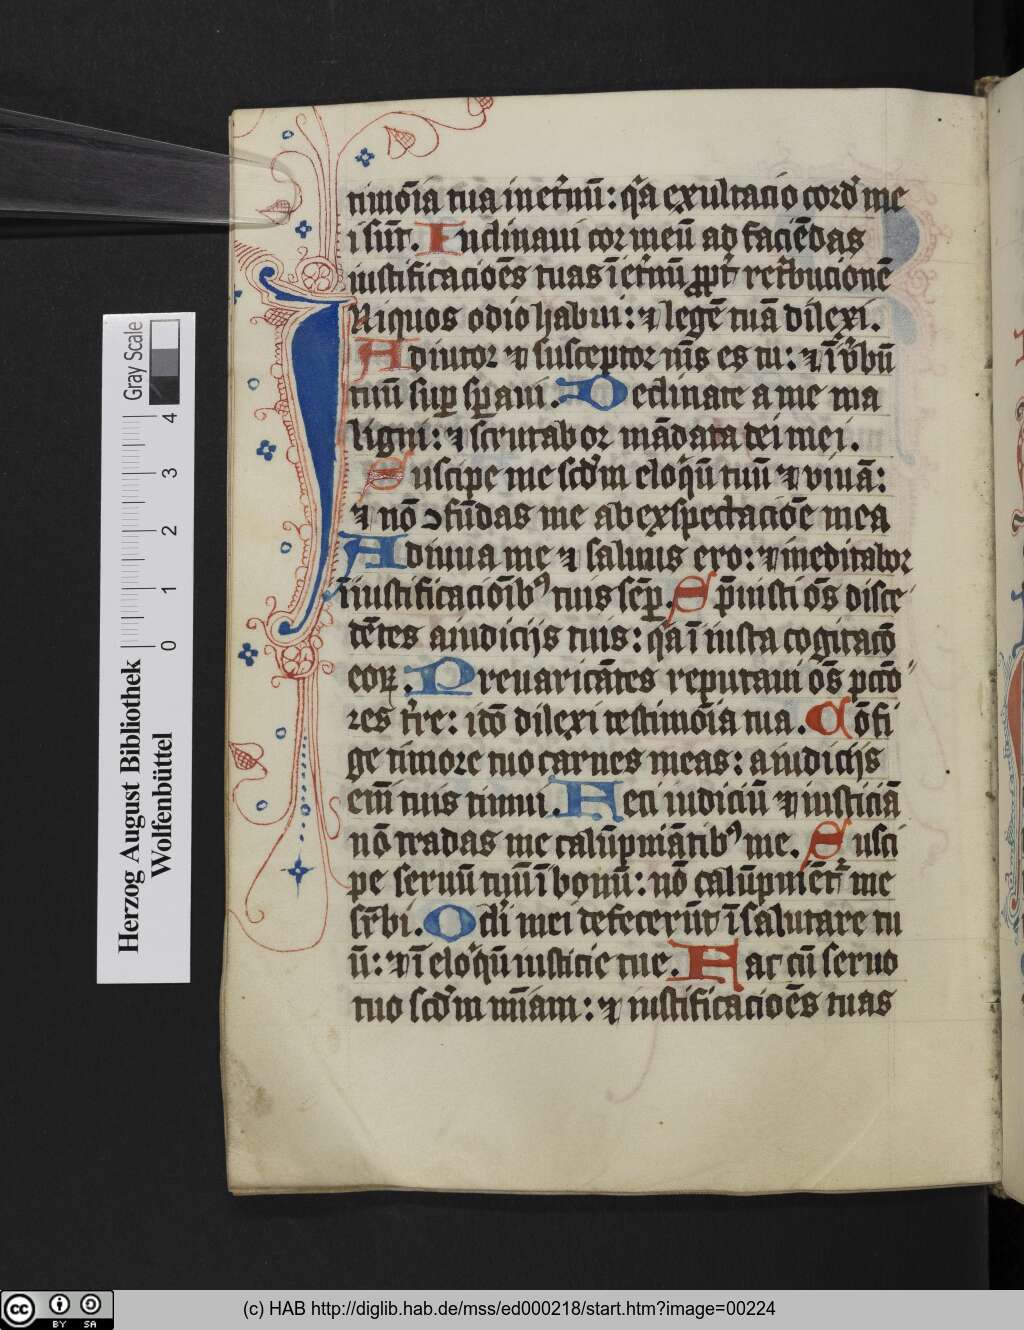 timo̅ia tua inet̾nu̅: q̾a exultacio cord̾ me
i su̅t. Inclinaui cor meu̅ ad facie̅das
iustificacio̅es tuas i̅ et̾nu̅ ꝓpt̾ ret̾bucione̅
Iniquos odio habui: ⁊ lege̅ tua̅ dilexi.
Adiutor ⁊ susceptor m̅s es tu: ⁊ i̅ v̾bu̅
tuu̅ suꝑ sꝑaui. Declinate a me ma
ligni: ⁊ scrutabor ma̅data dei mei.
Suscipe me scd̾m eloq̾u̅ tuu̅ ⁊ viua̅:
⁊ no̅ ↄfu̅das me ab expectacio̅e mea
Adiuua me ⁊ saluus ero: ⁊ meditabor
i̅ iustificacio̅ib⁹ tuis se̅ꝑ. Sp̅uisti o̅s disce
de̅tes a iudicijs tuis: q̾a i̅iusta cogitac̅o
eoꝝ. Preuarica̅tes reputaui o̅s pcc̅o
res t̾re: id̅o dilexi testimo̅ia tua. Co̅fi
ge timore tuo carnes meas: a iudicijs
em̅ tuis timui. Feci iudiciu̅ ⁊ iusticia̅
no̅ tradas me calu̅pnia̅tib⁹ me. Susci
pe seruu̅ tuu̅ i̅ bonu̅: no̅ calu̅pnie̅t̾ me
sr̅bi. Oc̅li mei defeceru̅t i̅ salutare tu
u̅: ⁊ i̅ eloq̾u̅ iusticie tue. Fac cu̅ seruo
tuo scd̾m mi̅am: ⁊ iustificacio̅es tuas
Herzog August Bibliothek
Wolfenbüttel
Gray Scale
0 1 2 3 4
(c) HAB http://diglib.hab.de/mss/ed000218/start.htm?image=00224
cc BY SA